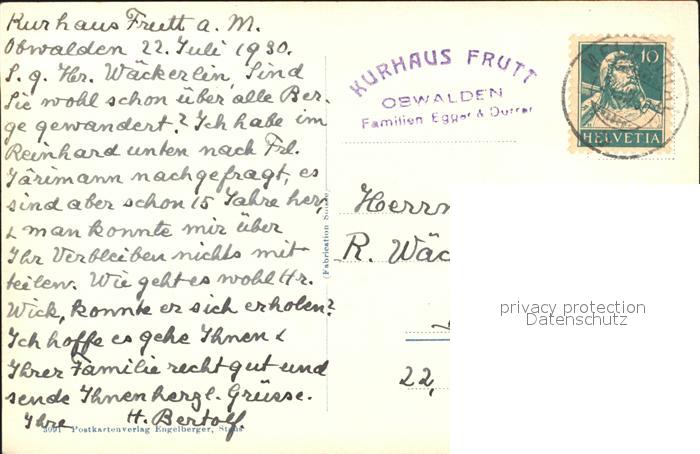 Kurhaus Frutt a. M.
Obwalden 22. Juli 1930.
S. g. Hr. Wäckerlin, Sind
Sie wohl schon über alle Ber-
ge gewandert? Ich habe im
Reinhard unten nach Frl.
Järimann nachgefragt, es
sind aber schon 15 Jahre her,
& man konnte mir über
Ihr Verbleiben nichts mit
teilen. Wie geht es wohl Hr.
Wick, konnte er sich erholen?
Ich hoffe es gehe Ihnen &
Ihrer Familie recht gut und
sende Ihnen herzl. Grüsse.
Ihre H. Bertolf.
3091 Postkartenverlag Engelberger, Stans
(Fabrication Suisse)
KURHAUS FRUTT
OBWALDEN
Familien Egger & Durrer
10
HELVETIA
Herrn
R. Wäc
22,
privacy protection
Datenschutz